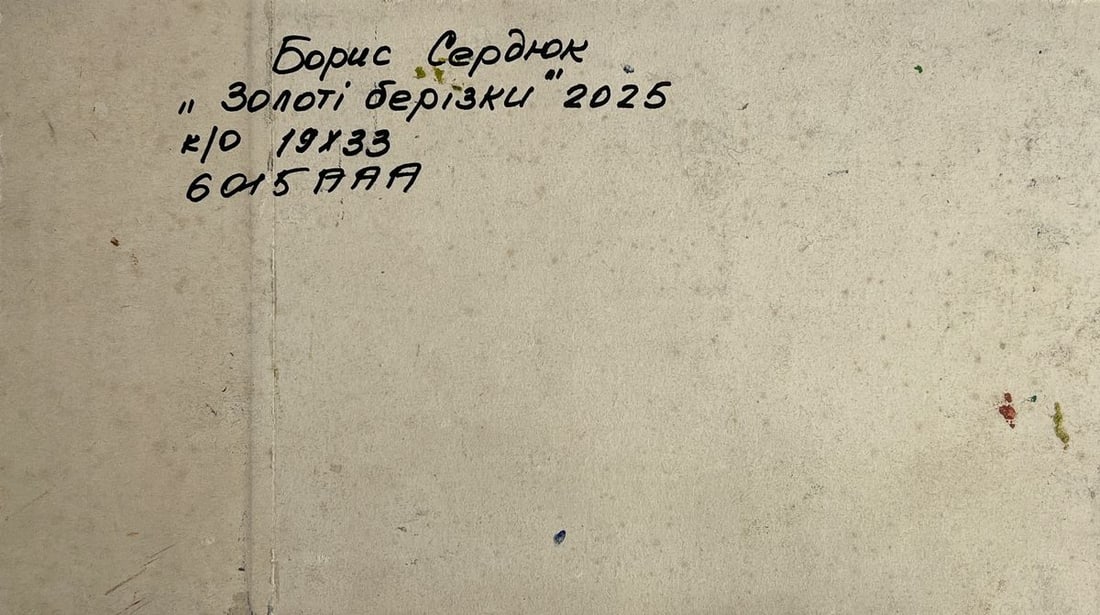 Борис Сердюк
„Золоті берізки" 2025
к/о 19х33
6015ААА